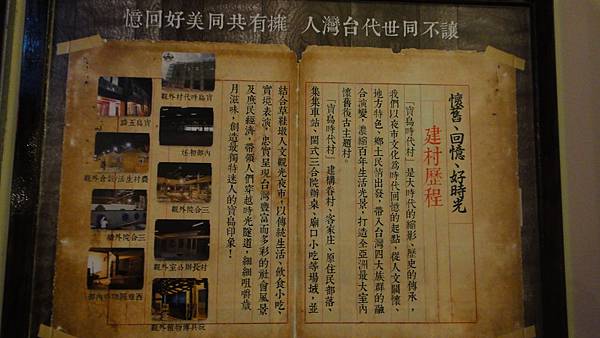 讓不同世代台灣人 擁有共同美好回憶
懷舊、回憶、好時光
建村歷程
「寶島時代村」是大時代的縮影、歷史的傳承，
我們以夜市文化為時代回憶的起點，從人文關懷、
地方特色、鄉土民情出發，帶入台灣四大族群的融
合演變，濃縮百年生活光景，打造全亞洲最大室內
懷舊復古主題村。
「寶島時代村」建構眷村、客家庄、原住民部落、
集集車站、閩式三合院辦桌、廟口小吃等場域，並
結合草鞋墩人文觀光夜市，以傳統生活、飲食小吃、
實境表演，忠實呈現台灣豐富而多彩的社會風景
及庶民經濟，帶領人們穿越時光隧道，細細咀嚼歲
月滋味，創造最獨特迷人的寶島印象！
寶島時代村外觀
三合院外觀
村長辦公室外觀
玩具博物館外觀
三合院外牆